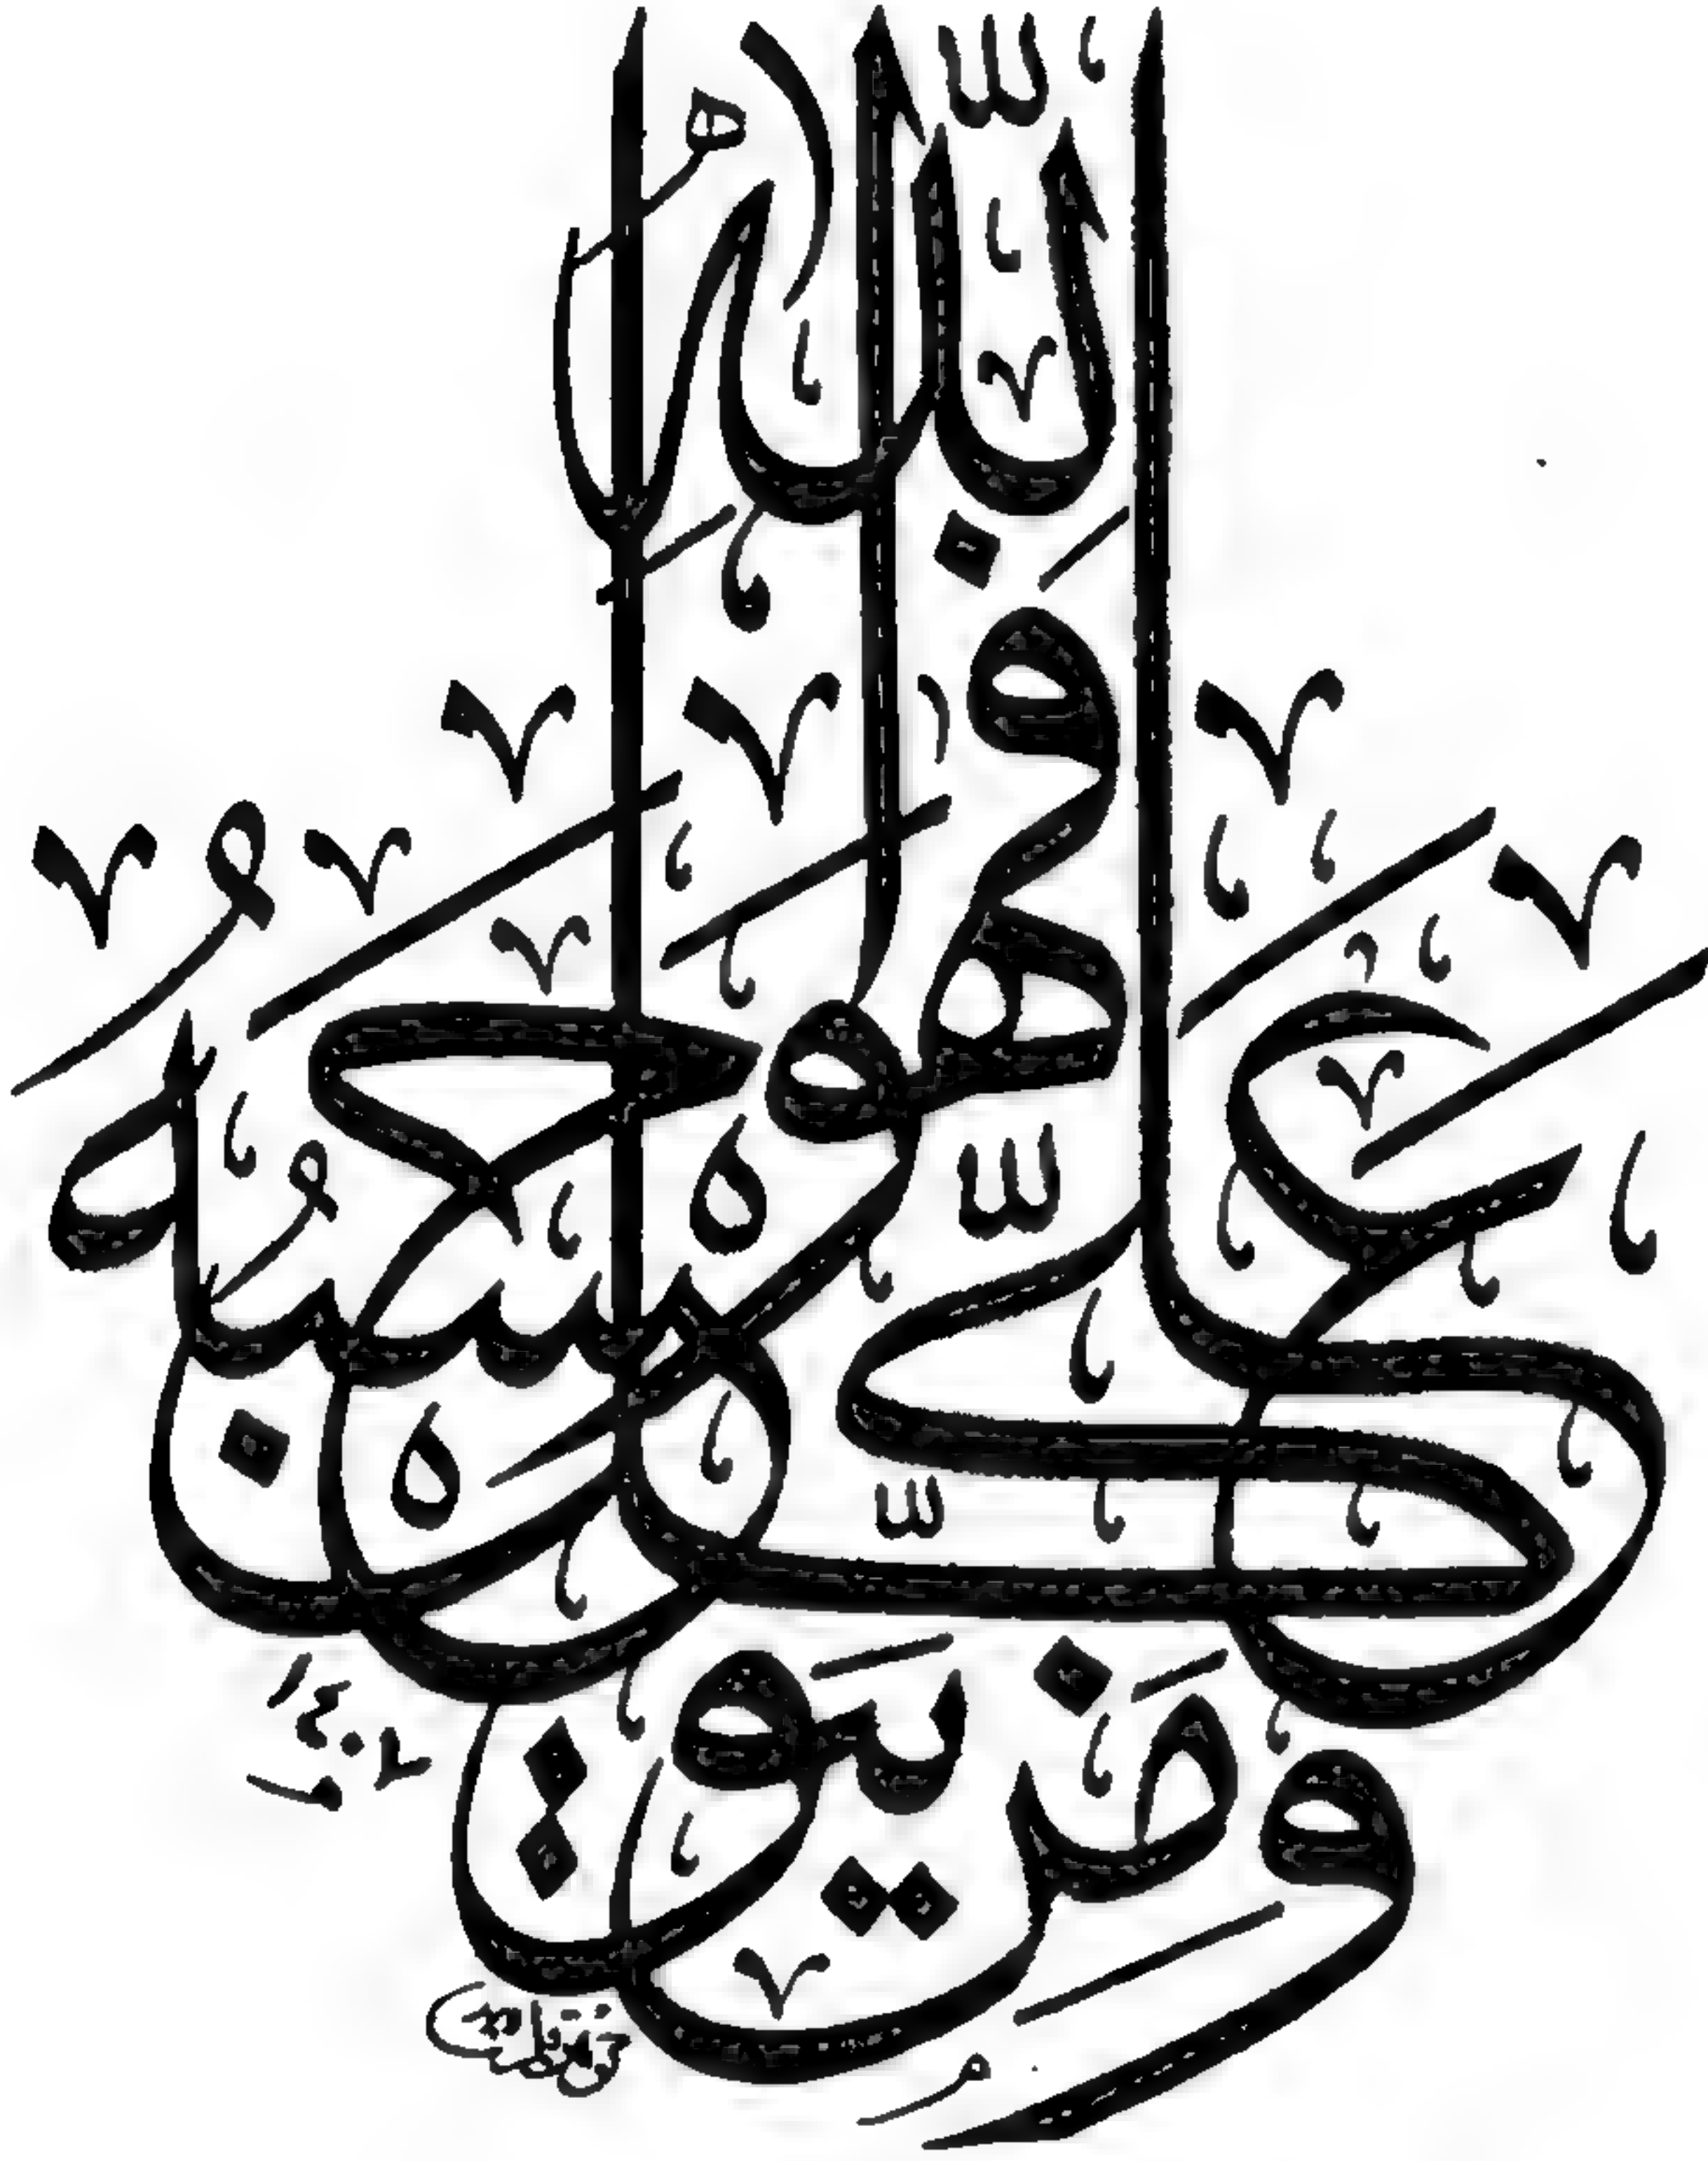 وَمَنْ يَتَوَكَّلْ عَلَى اللَّهِ فَهُوَ حَسْبُهُ
١٤٠٢